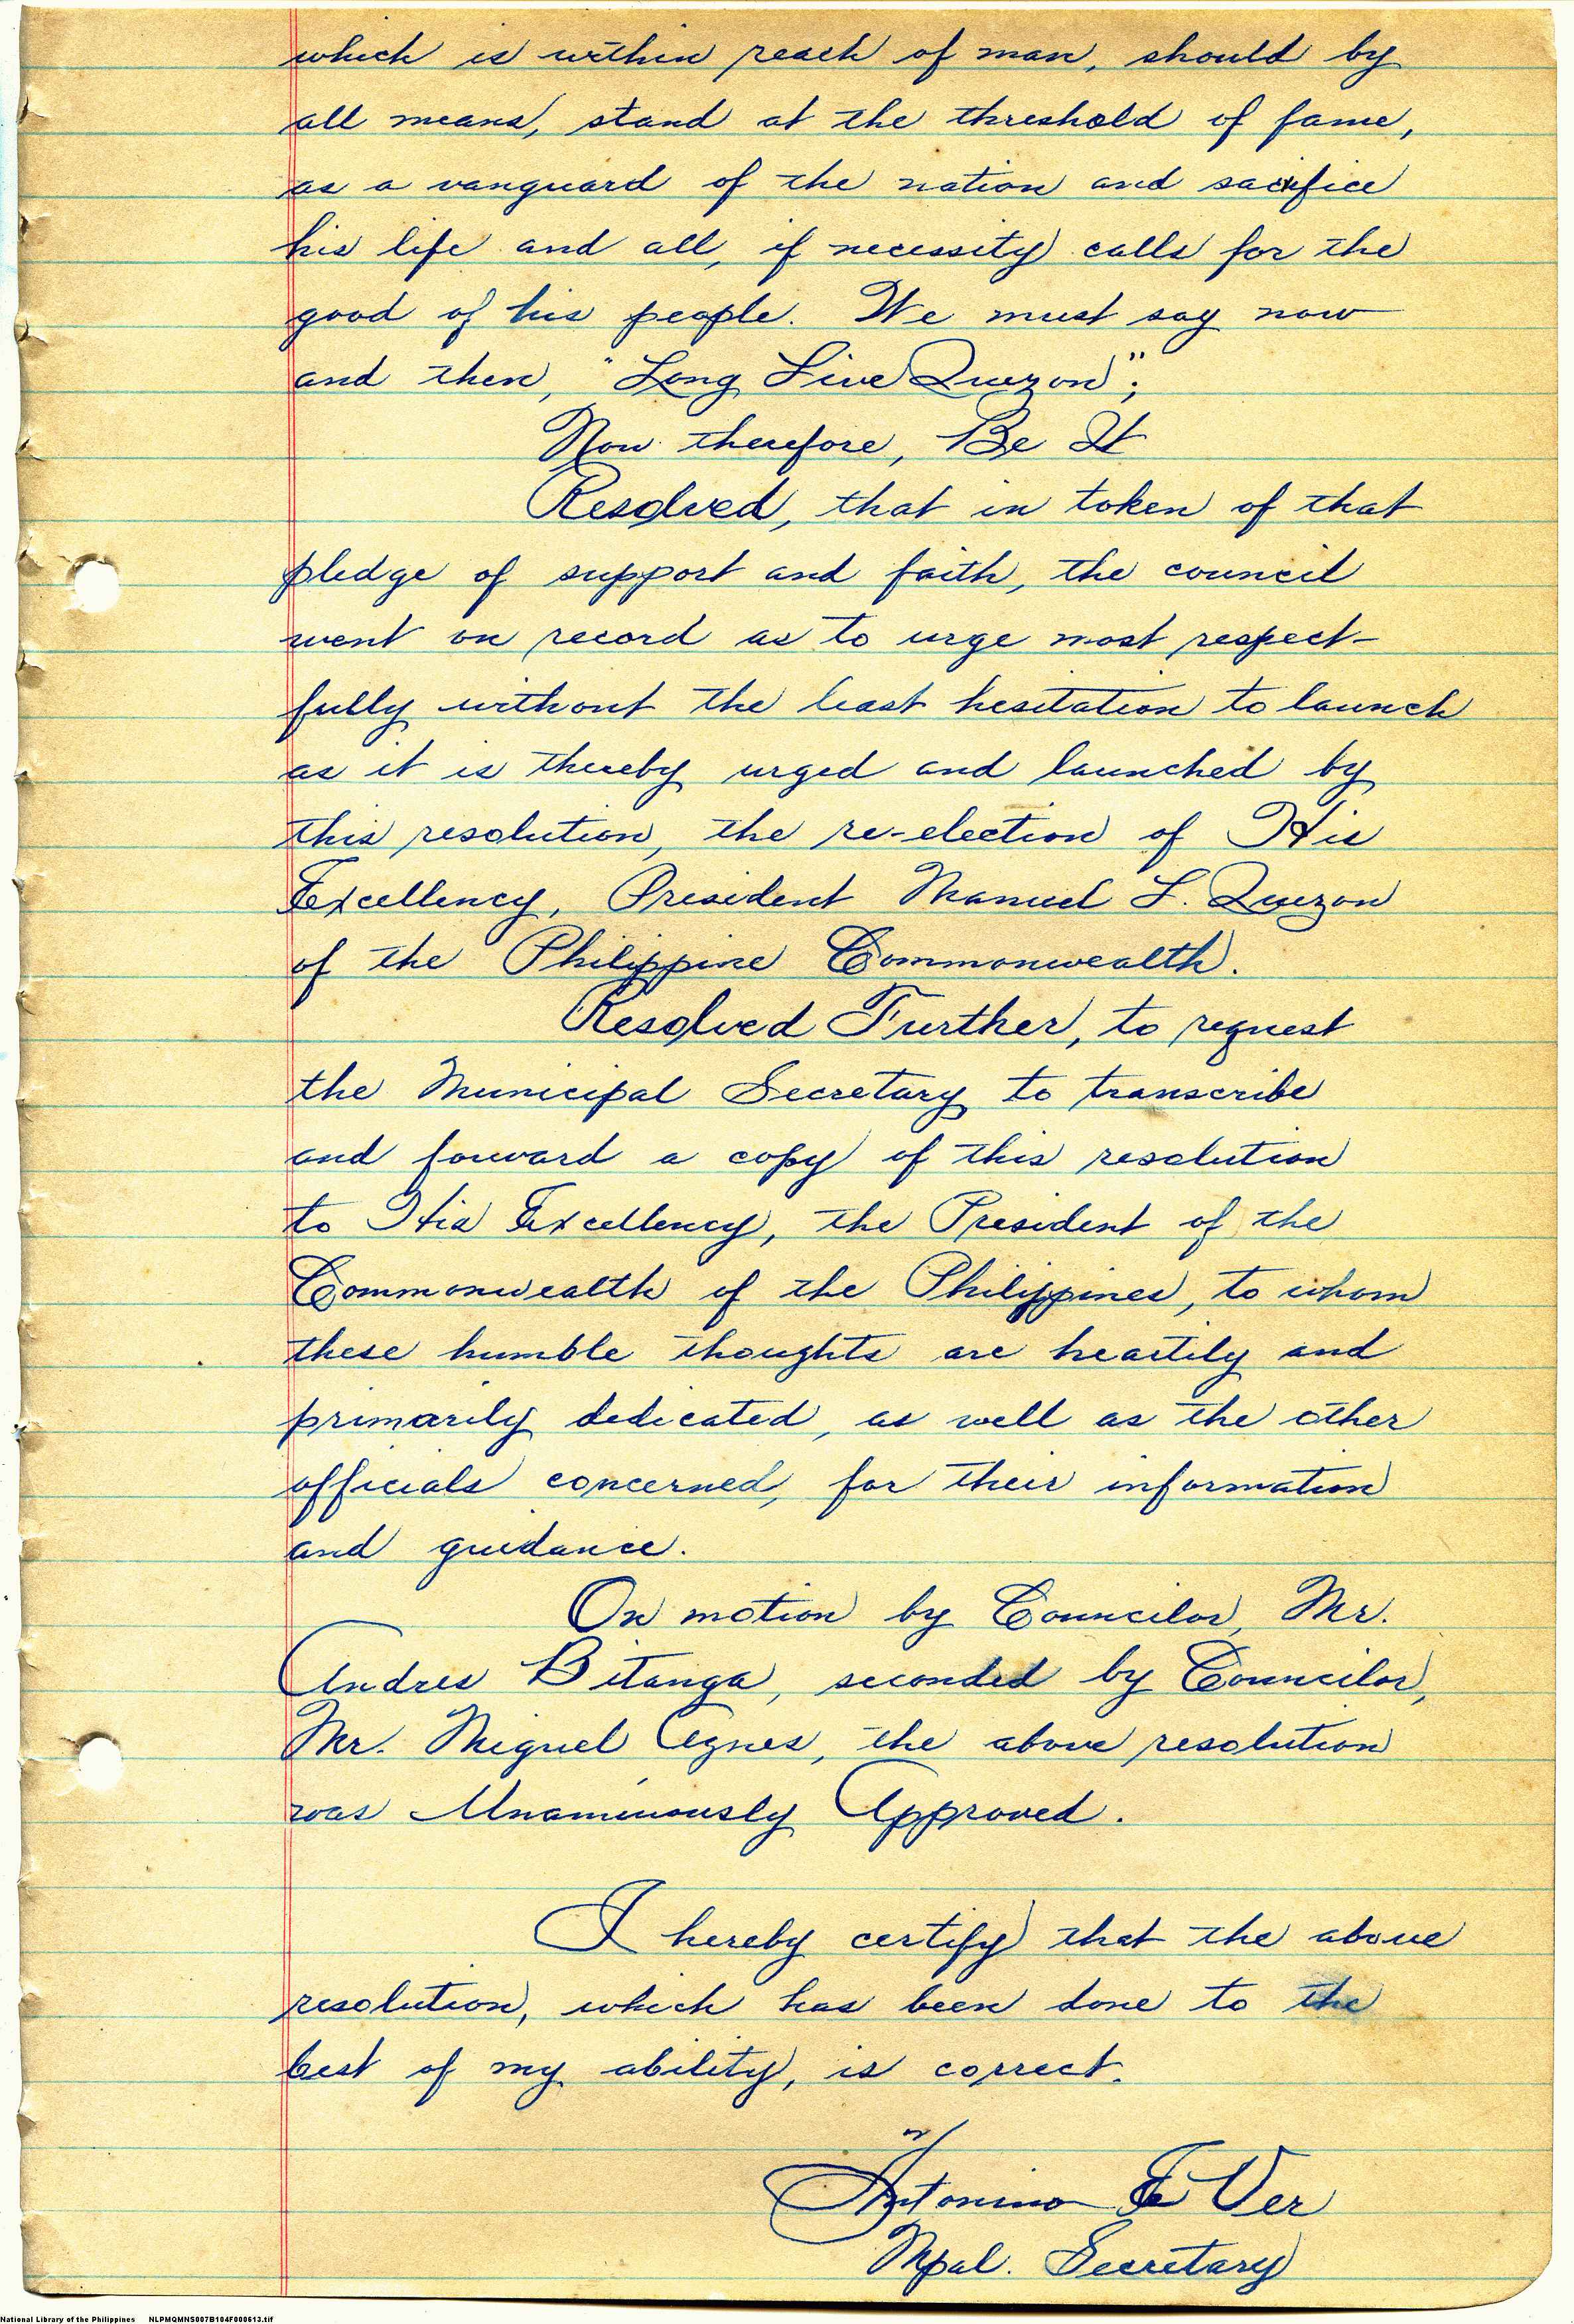 which is within reach of man, should by
all means, stand at the threshold of fame,
as a vanguard of the nation and sacrifice
his life and all, if necessity calls for the
good of his people. We must say now
and then, "Long Live Quezon";
Now therefore, Be It
Resolved, that in token of that
pledge of support and faith, the council
went on record as to urge most respect-
fully without the least hesitation to launch
as it is thereby urged and launched by
this resolution, the re-election of His
Excellency, President Manuel L. Quezon
of the Philippine Commonwealth.
Resolved Further, to request
the Municipal Secretary to transcribe
and forward a copy of this resolution
to His Excellency, the President of the
Commonwealth of the Philippines, to whom
these humble thoughts are heartily and
primarily dedicated, as well as the other
officials concerned, for their information
and guidance.
On motion by Councilor, Mr.
Andres Bitanga, seconded by Councilor,
Mr. Miguel Agnes, the above resolution
was Unanimously Approved.
I hereby certify that the above
resolution, which has been done to the
best of my ability, is correct.
Antonino Ver
Mpal. Secretary
National Library of the Philippines NLPMQMNS007B104F000613.tif